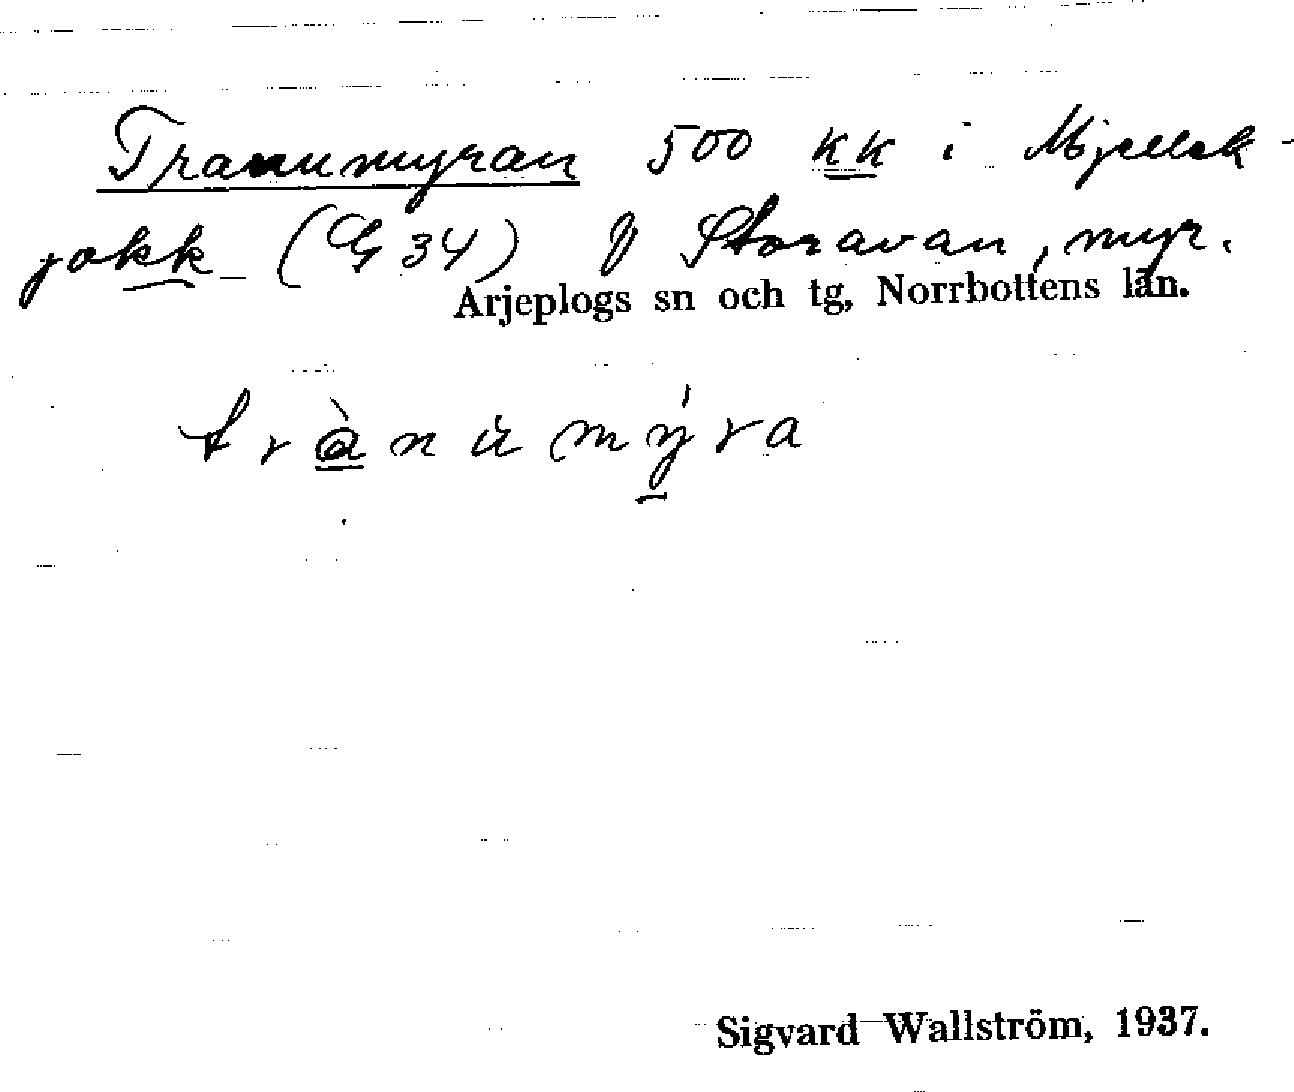 Tranumyran 500 kk i Mjellek-
jokk (G 34) f Storavan, myr.
Arjeplogs sn och tg, Norrbottens län.
trànumýra
Sigvard Wallström, 1937.